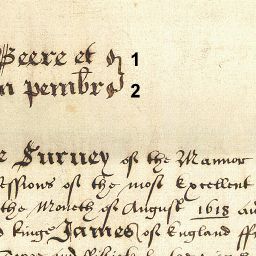 Beere et 1
n pembr 2
e Survey of the Mannor
essions of the most Excellent
the Moneth of August 1618 au
d kinge James of England ff